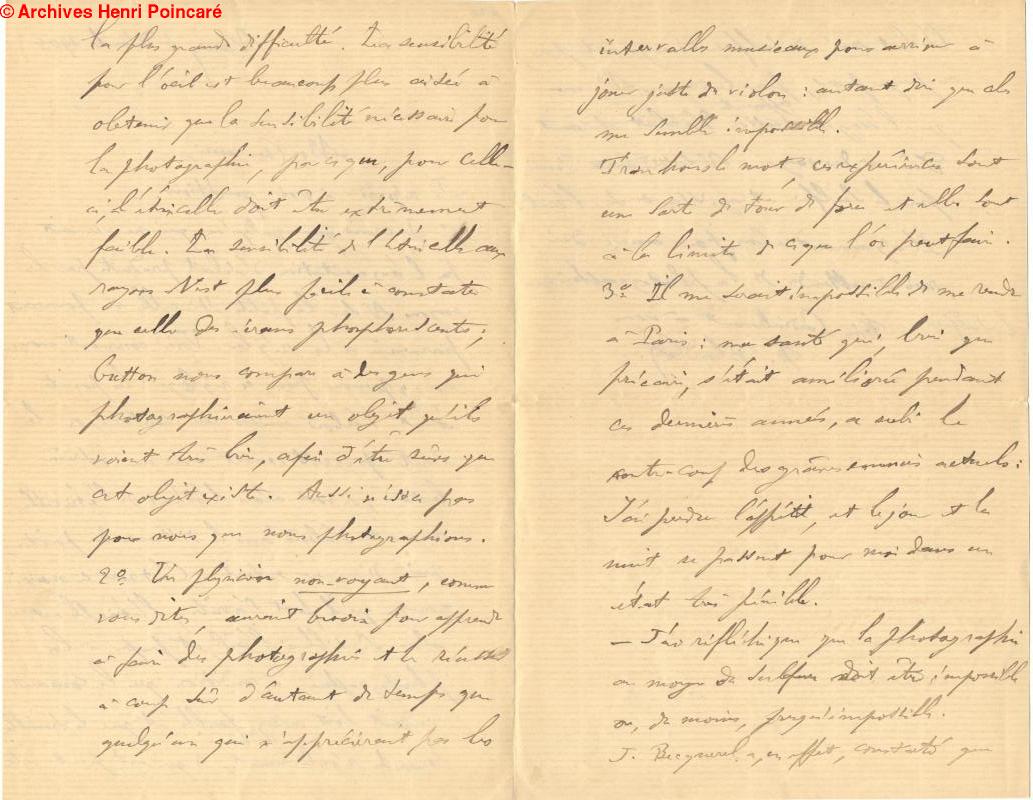 © Archives Henri Poincaré
la plus grande difficulté. La sensibilité
pour l'œil est beaucoup plus aisée à
obtenir que la sensibilité nécessaire pour
la photographie, parce que, pour celle-
ci, l'étincelle doit être extrêmement
faible. La sensibilité de l'étincelle aux
rayons N est plus facile à constater
que celle des écrans phosphorescents ;
Gutton nous compare à des gens qui
photographieraient un objet qu'ils
voient très bien, afin d'être sûrs que
cet objet existe. Aussi n'est-ce pas
pour nous que nous photographions.
2° Un physicien non-voyant, comme
vous dites, aurait besoin pour apprendre
à faire des photographies et les réussir
à coup sûr d'autant de temps que
quelqu'un qui n'apprécierait pas les
intervalles musicaux pour arriver à
jouer juste du violon : autant dire que cela
me semble impossible.
Tranchons le mot, ces expériences sont
une sorte de tour de force et elles sont
à la limite de ce que l'on peut faire.
3° Il me serait impossible de me rendre
à Paris : ma santé qui, bien que
précaire, s'était améliorée pendant
ces dernières années, a subi le
contre-coup des graves ennuis actuels :
J'ai perdu l'appétit, et le jour et la
nuit se passent pour moi dans un
état très pénible.
— J'ai réfléchi que la photographie
au moyen du sulfure doit être impossible
ou, du moins, presqu'impossible.
J. Becquerel a, en effet, constaté que